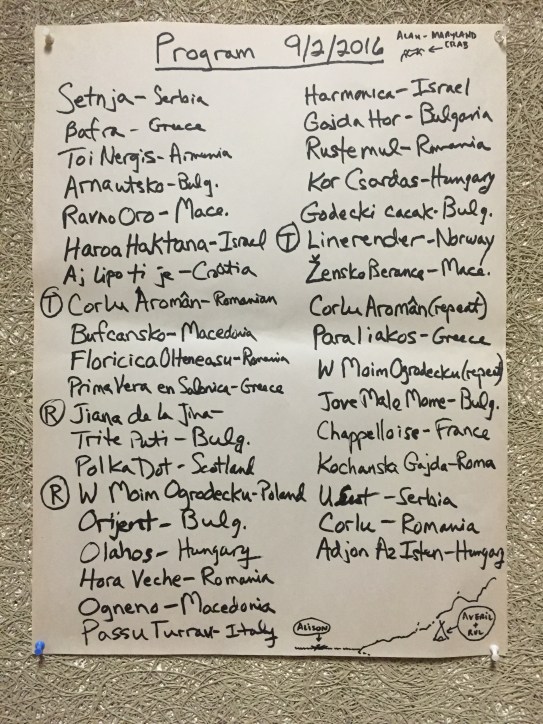 Program 9/2/2016
ALAN - MARYLAND
CRAB
Setnja - Serbia
Bafra - Greece
Toi Nergis - Armenia
Arnautsko - Bulg.
Ravno Oro - Mace.
Haroa Haktana - Israel
Aj Lipo ti je - Croatia
T Corlu Áromân - Romanian
Bufcansko - Macedonia
Floricica Olteneasu - Romania
Prima Vera en Salonica - Greece
R Jiana de la Jina -
Trite Puti - Bulg.
Polka Dot - Scotland
R W Moim Ogrodecku - Poland
Orijent - Bulg.
Olahos - Hungary
Hora Veche - Romania
Ogneno - Macedonia
Passu Turrau - Italy
Harmonica - Israel
Gajda Hor - Bulgaria
Rustemul - Romania
Kor Csardas - Hungary
Godecki cacak - Bulg.
T Linerender - Norway
Žensko Berance - Mace.
Corlu Aromân (repeat)
Paraliakos - Greece
W Moim Ogrodecku (repeat)
Jove Male Mome - Bulg.
Chappelloise - France
Kochanska Gajda - Roma
U Sest - Serbia
Corlu - Romania
Adjon Az Isten - Hungary
ALISON
AVERIL
+